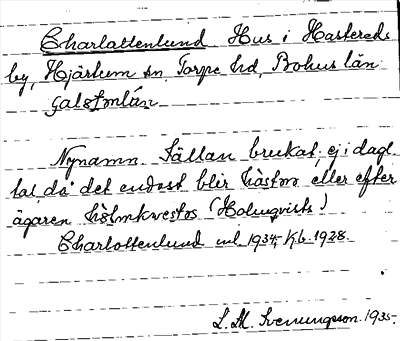 Charlottenlund Hus i Hastereds
by, Hjärtum sn, Torpe hd, Bohus län
Nynamn. Sällan brukat, ej i dagl.
tal, då det endast blir hästom eller efter
ägaren hòlmkvestos (Holmqvists)
Charlottenlund ml. 1934, Kb. 1928.
L. M. Svenungsson 1935.